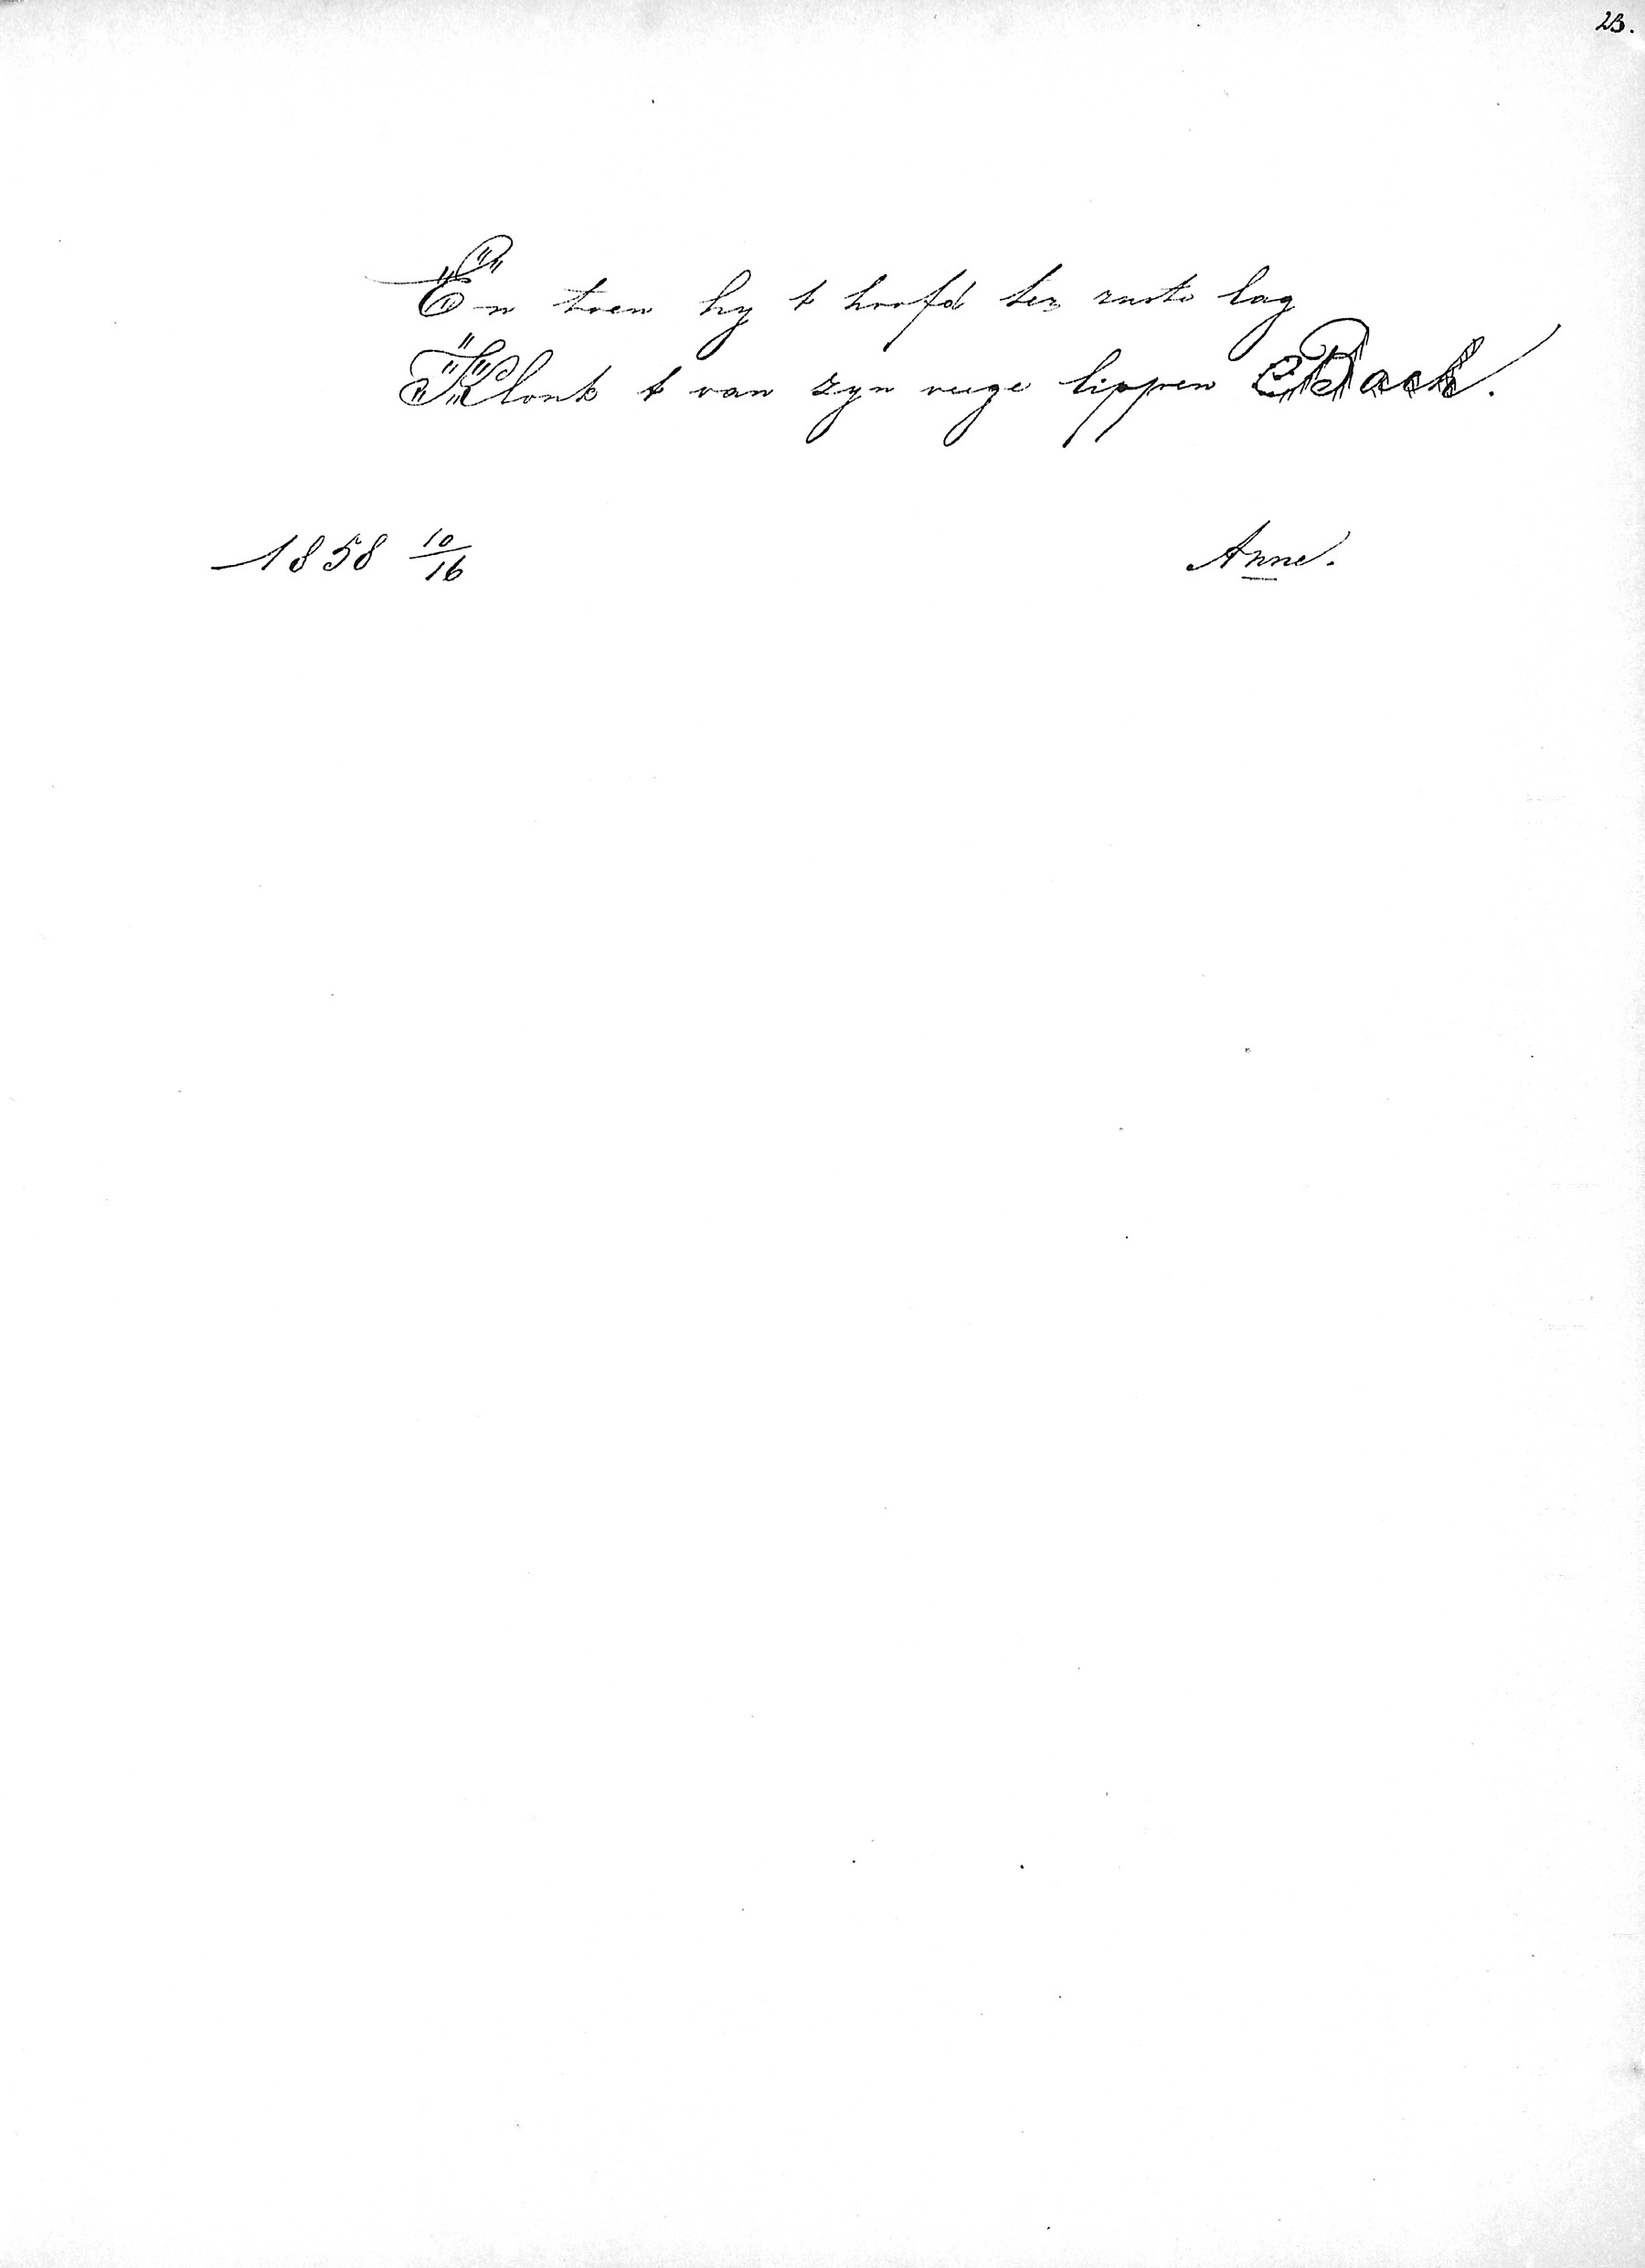 23.
En toen hy t hoofd ter ruste lag
Klonk t van zyn veege lippen Bach.
1858 10/16 Anne.